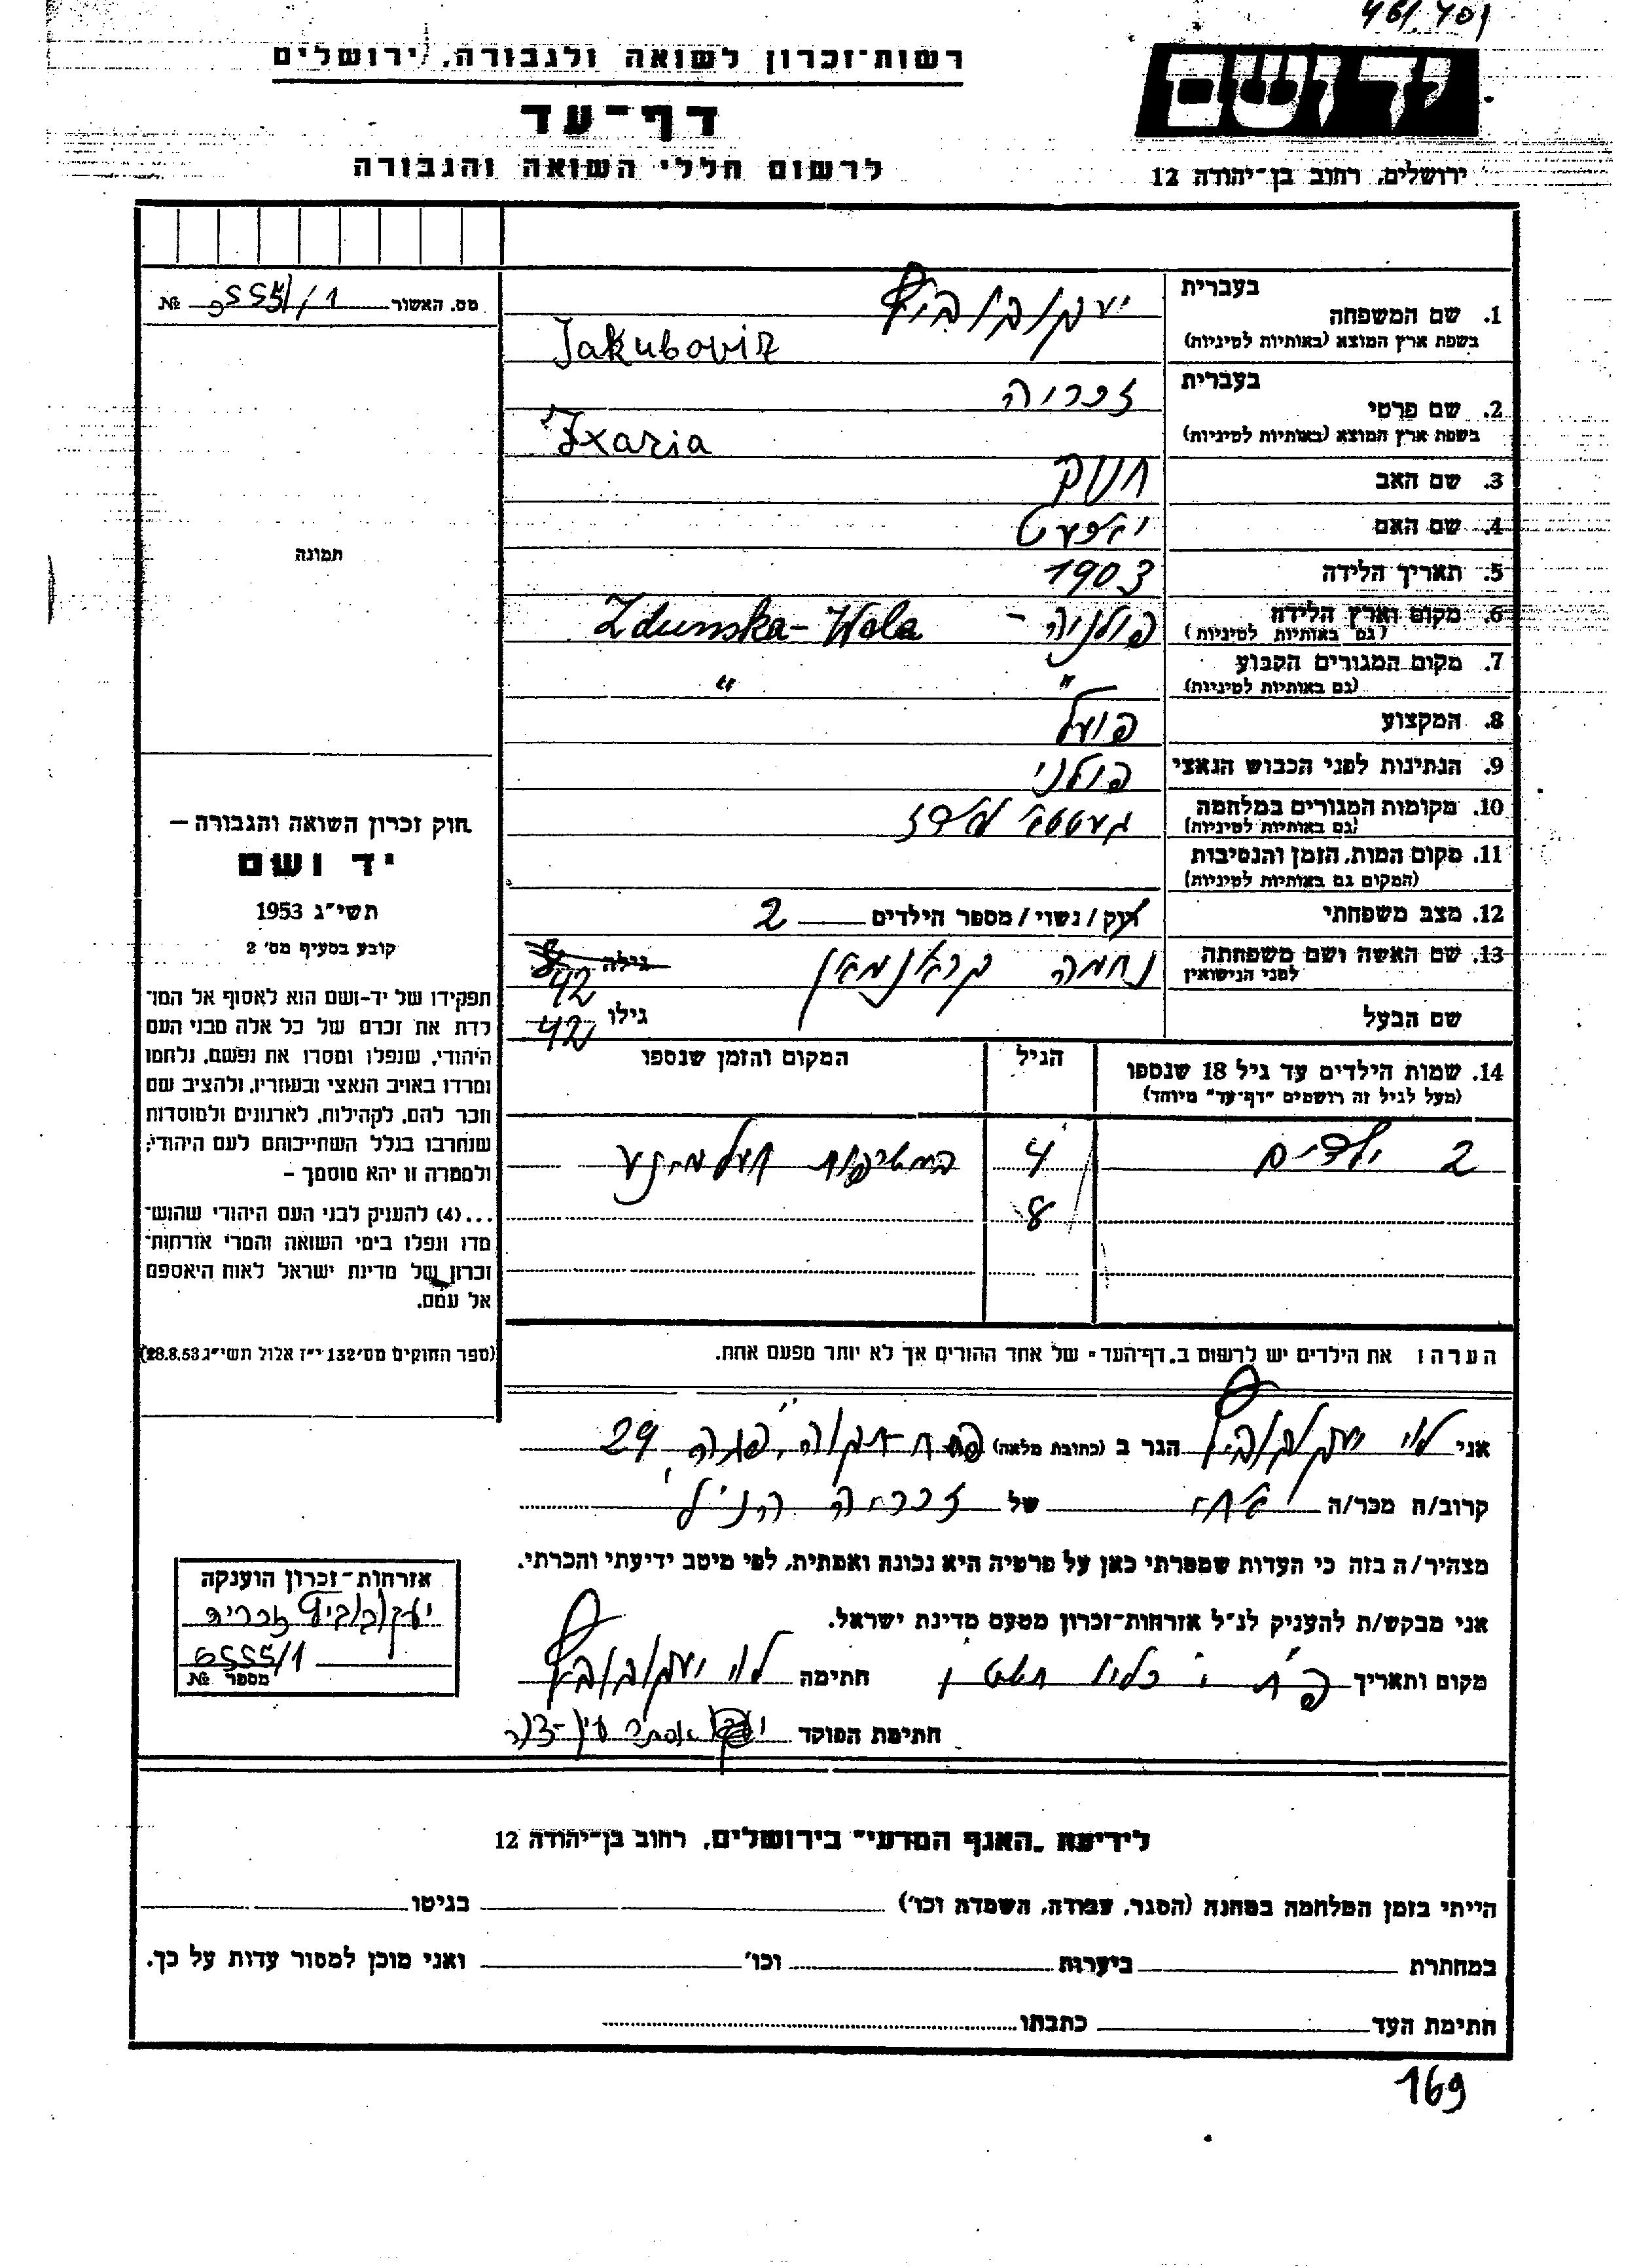 46/401
רשות־זכרון לשואה ולגבורה, ירושלים
יד ושם
דף־עד
לרשום חללי השואה והגבורה
ירושלים, רחוב בן־יהודה 12
מס. האשור 1/ №
תמונה
בעברית יעקובוביץ
1. שם המשפחה
בשפת ארץ המוצא (באותיות לטיניות) Jakubovitz
בעברית זכריה
2. שם פרטי
בשפת ארץ המוצא (באותיות לטיניות) Zxaria
3. שם האב חנוך
4. שם האם
5. תאריך הלידה 1903
6. מקום וארץ הלידה פולניה - Zdunska-Wola
(גם באותיות לטיניות)
7. מקום המגורים הקבוע " "
(גם באותיות לטיניות)
8. המקצוע פועל
9. הנתינות לפני הכבוש הנאצי פולני
10. מקומות המגורים במלחמה געטא לאדז
(גם באותיות לטיניות)
11. מקום המות, הזמן והנסיבות
(המקום גם באותיות לטיניות)
12. מצב משפחתי רוק/נשוי/מספר הילדים 2
13. שם האשה ושם משפחתה נחמה גילה 42
לפני הנישואין
שם הבעל גילו 42
14. שמות הילדים עד גיל 18 שנספו הגיל המקום והזמן שנספו
(מעל לגיל זה רושמים "דף־עד" מיוחד)
2 ילדים 4
8
הערה: את הילדים יש לרשום ב"דף־העד" של אחד ההורים אך לא יותר מפעם אחת.
חוק זכרון השואה והגבורה –
יד ושם
תשי"ג 1953
קובע בסעיף מס' 2
תפקידו של יד־ושם הוא לאסוף אל המו־
לדת את זכרם של כל אלה מבני העם
היהודי, שנפלו ומסרו את נפשם, נלחמו
ומרדו באויב הנאצי ובעוזריו, ולהציב שם
וזכר להם, לקהילות, לארגונים ולמוסדות
שנחרבו בגלל השתייכותם לעם היהודי,
ולמטרה זו יהא מוסמך –
...(4) להעניק לבני העם היהודי שהוש־
מדו ונפלו בימי השואה והמרי אזרחות־
זכרון של מדינת ישראל לאות היאספם
אל עמם.
(ספר החוקים מס' 132 י"ז אלול תשי"ג 28.8.53)
אני לוי יעקובוביץ הגר ב (כתובת מלאה) פתח-תקוה, 29
קרוב/ה מכר/ה אח של זכריה הנ"ל
מצהיר/ה בזה כי העדות שמסרתי כאן על פרטיה היא נכונה ואמתית, לפי מיטב ידיעתי והכרתי.
אני מבקש/ת להעניק לנ"ל אזרחות־זכרון מטעם מדינת ישראל.
מקום ותאריך פ"ת י' כסלו חתימה לוי יעקובוביץ
חתימת הפוקד
אזרחות־זכרון הוענקה
יעקובוביץ זכריה
מספר №
לידיעת "האגף המדעי" בירושלים, רחוב בן־יהודה 12
הייתי בזמן המלחמה במחנה (הסגר, עבודה, השמדה וכו') בגיטו
במחתרת ביערות וכו' ואני מוכן למסור עדות על כך.
חתימת העד כתבתו
169